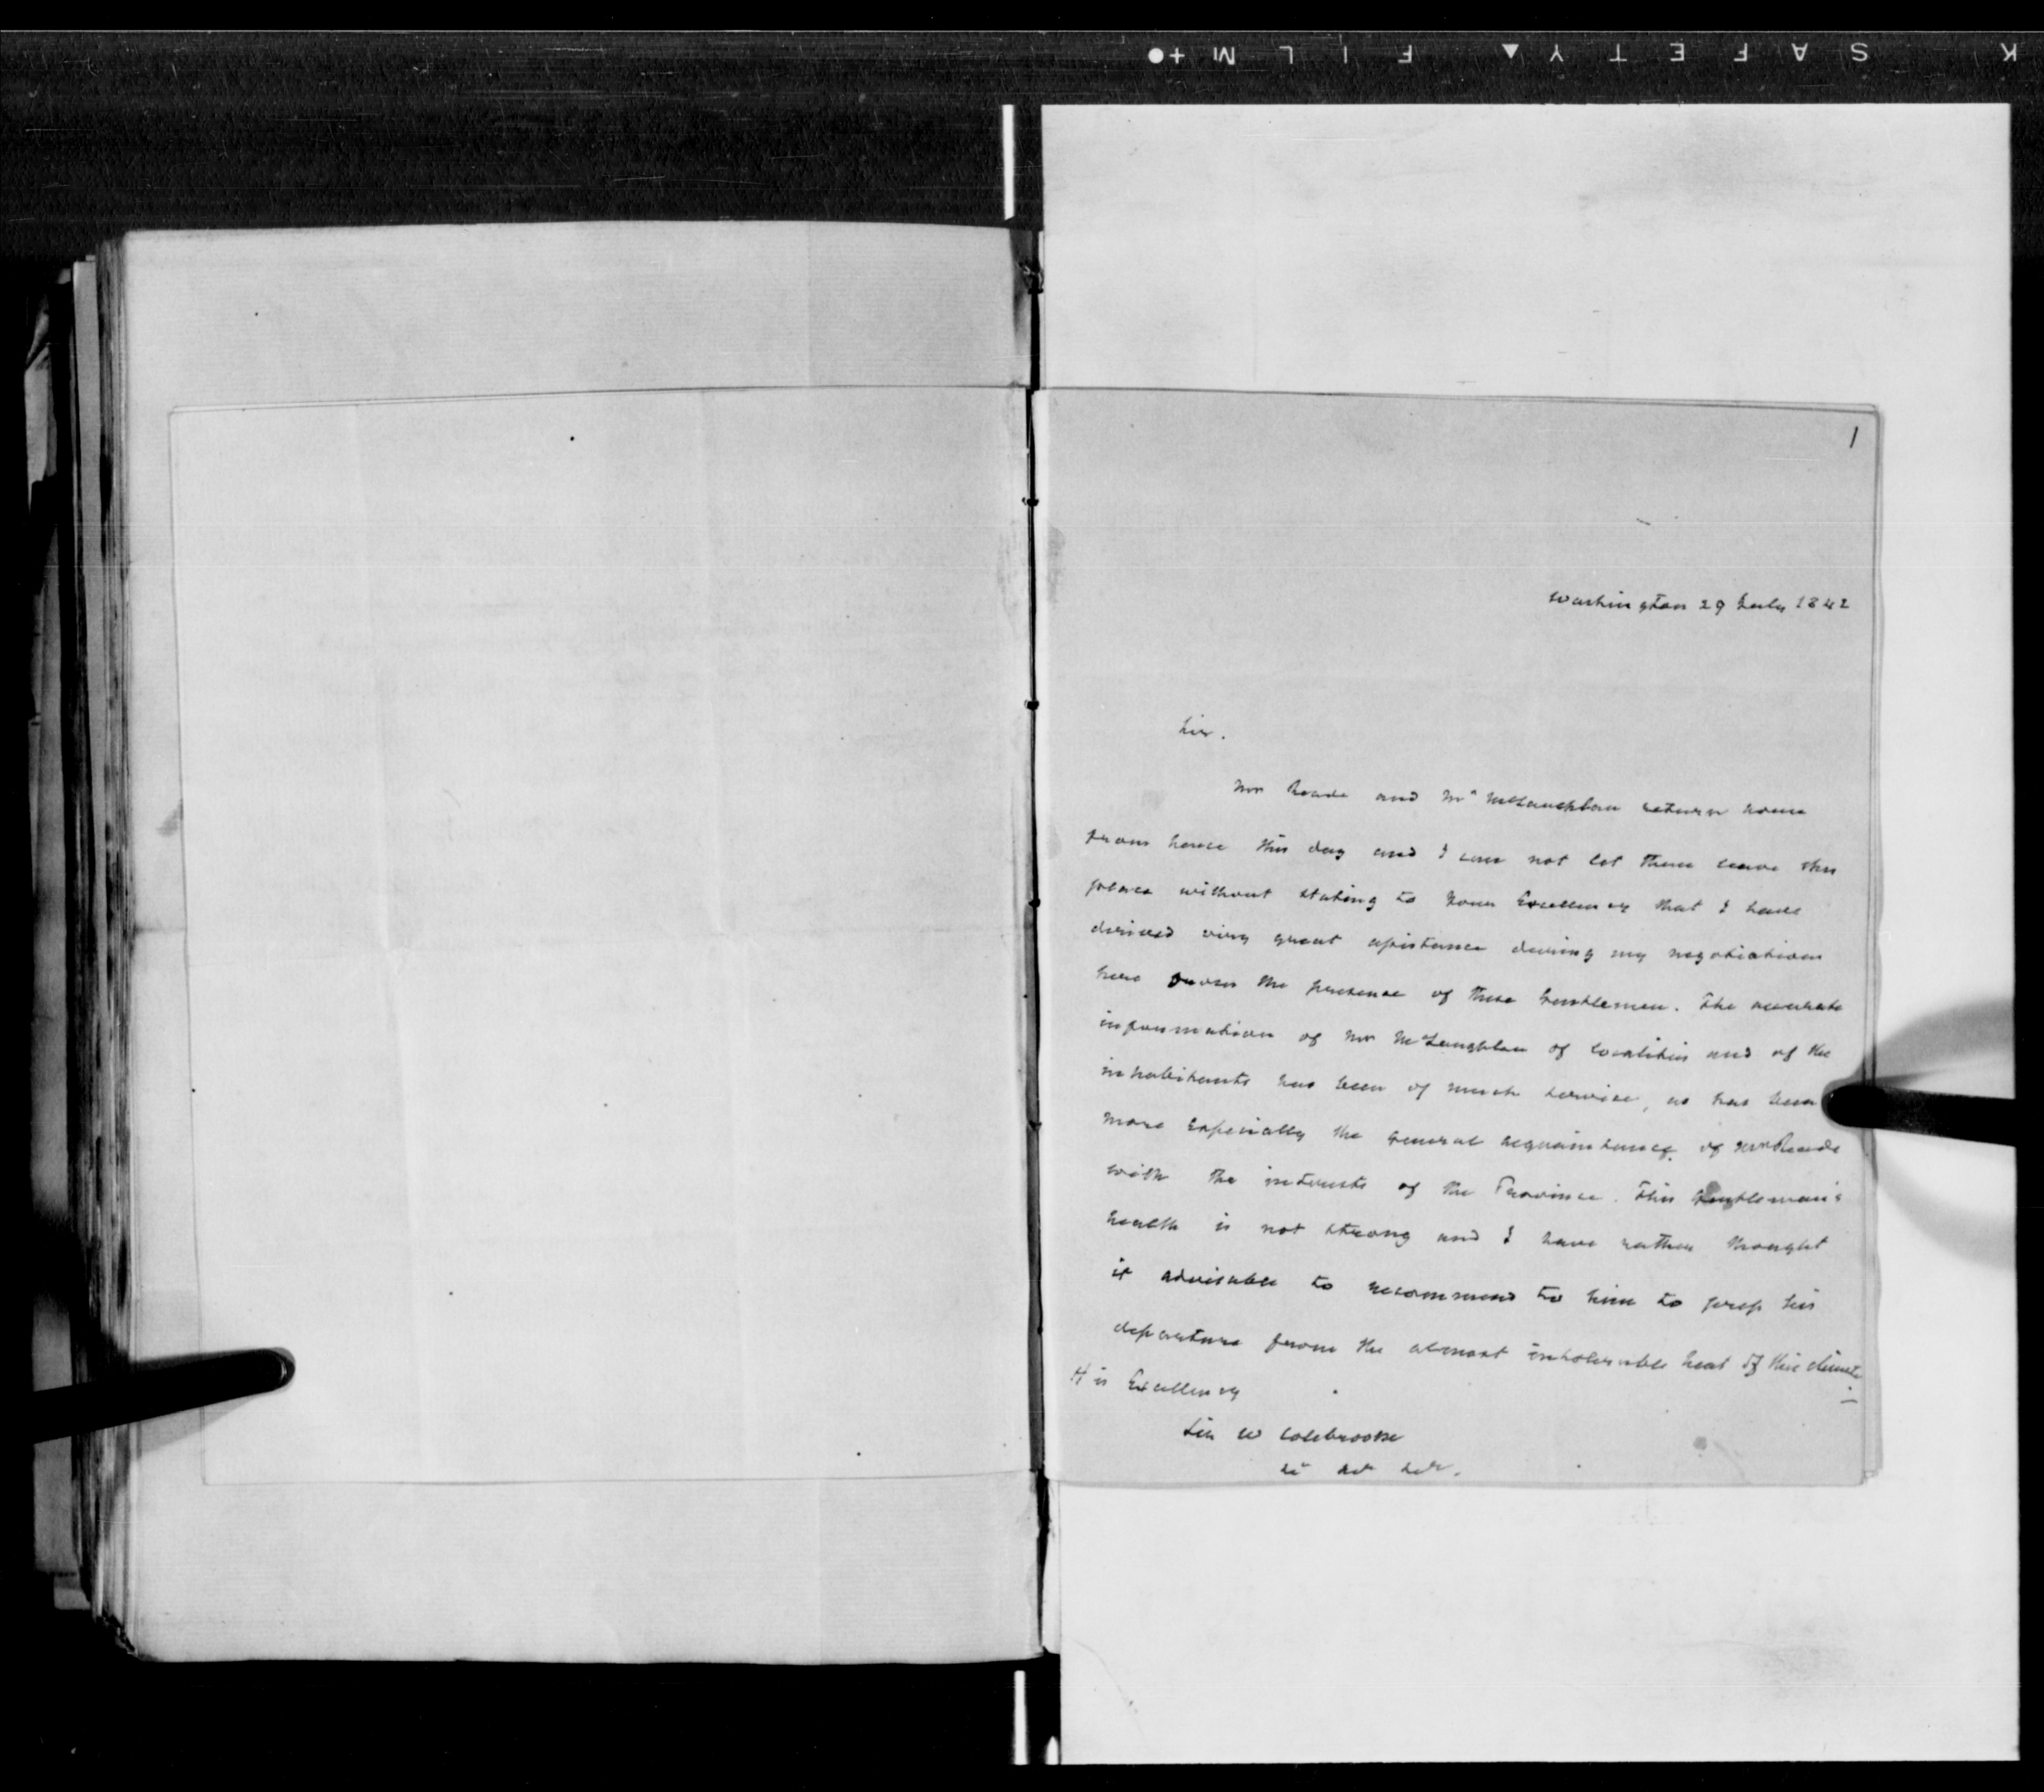 K SAFETY▲FILM+●
1
Washington 29 July 1842
Sir.
Mr Reade and Mr McLaughlan return home
from hence this day and I can not let them leave this
place without stating to your Excellency that I have
derived very great assistance during my negotiation
here from the presence of these Gentlemen. The accurate
information of Mr McLaughlan of localities and of the
inhabitants has been of much service, as has been
more especially the general acquaintance of Mr Reade
with the interests of the Province. This Gentleman's
health is not strong and I have rather thought
it advisable to recommend to him to press his
departure from the almost intolerable heat of this climate.
His Excellency
Sir W Colebrooke
&c &c &c.